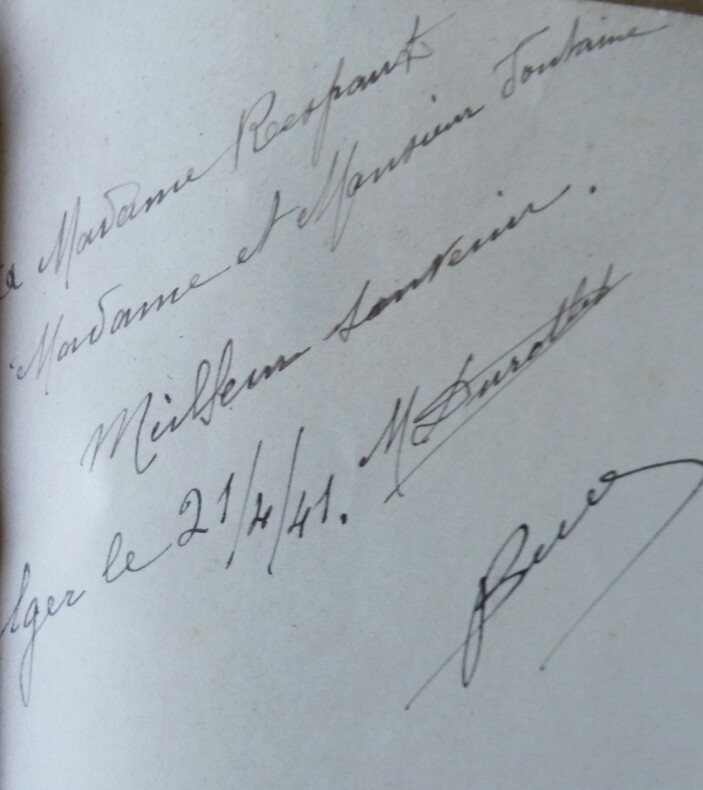 a Madame Respaut
Madame et Monsieur Fontaine
Meilleur souvenir.
Alger le 21/4/41. M